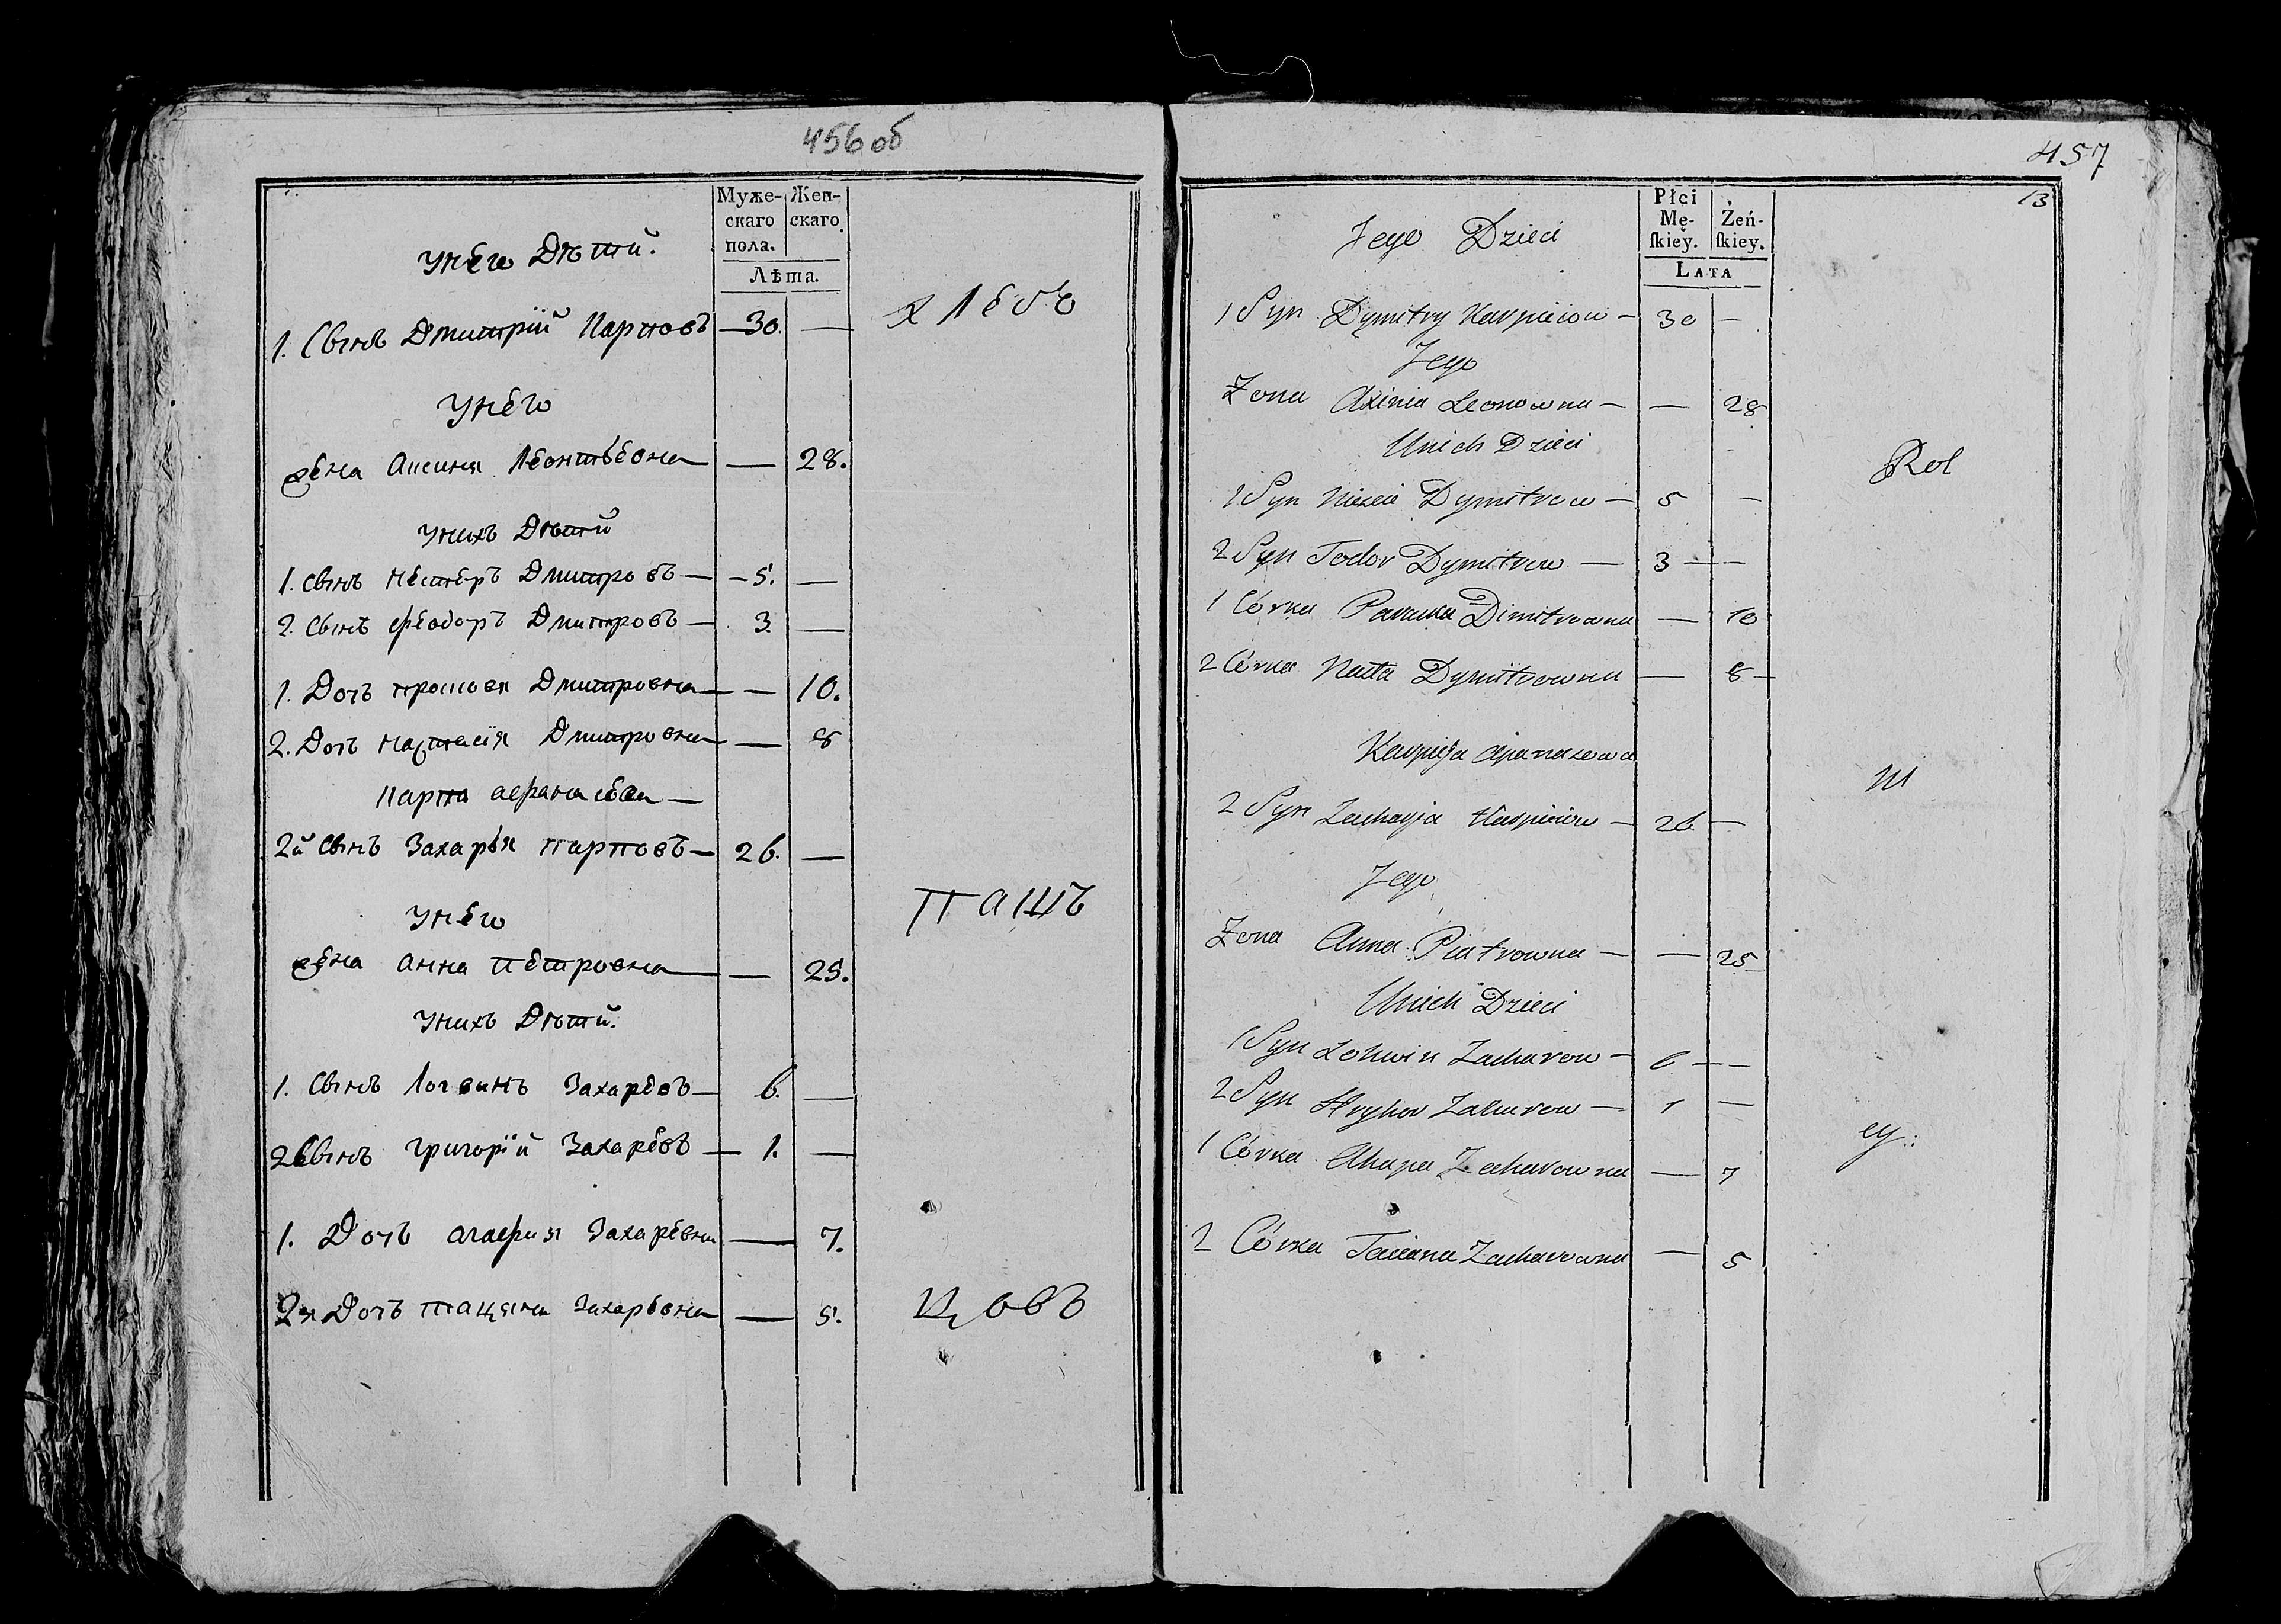 456об
Муже-скаго пола. Жен-скаго.
Лѣта.
У него Дѣтй.
1. Сынъ Дмитрій Карповъ — 30. —
хлебо
У него
жена Аксиня Леонтьевна — 28.
У нихъ Дѣтй
1. Сынъ Нестеръ Дмитровъ — 5. —
2. Сынъ Феодоръ Дмитровъ — 3. —
1. Дочъ Просковя Дмитровна — 10.
2. Дочъ Настасія Дмитровна — 8
Карпа Афанасьева —
2й Сынъ Захарья Карповъ — 26. —
пашъ
У него
жена Анна Петровна — 25.
У нихъ Дѣтй.
1. Сынъ Логвинъ Захаревъ — 6. —
2 Сынъ Григорій Захаревъ — 1. —
1. Дочъ Агафия Захаревна — 7.
2я Дочъ Тацяна Захаревна — 5.
цовъ
457
13
Płci Mę-skiey. Żeń-skiey.
LATA
Jego Dzieci
1 Syn Dymitry Karpiiow — 30 —
Jego
Żona Axinia Leonowna — — 28
Unich Dzieci
Rol
1 Syn Dymitrow — 5 —
2 Syn Todor Dymitrow — 3 —
1 Córka Paraska Dimitrowna — 10
2 Córka Nasta Dymitrowna — 8
Karpieja Apanasowa
ni
2 Syn Zacharja Karpiiow — 26 —
Jego
Żona Anna Piatrowna — — 25
Unich Dzieci
1 Syn Lohwin Zacharow — 6 —
2 Syn Hryhor Zakarow — 1 —
cy:
1 Córka Ahapa Zacharowna — 7
2 Córka Taciana Zacharowna — 5